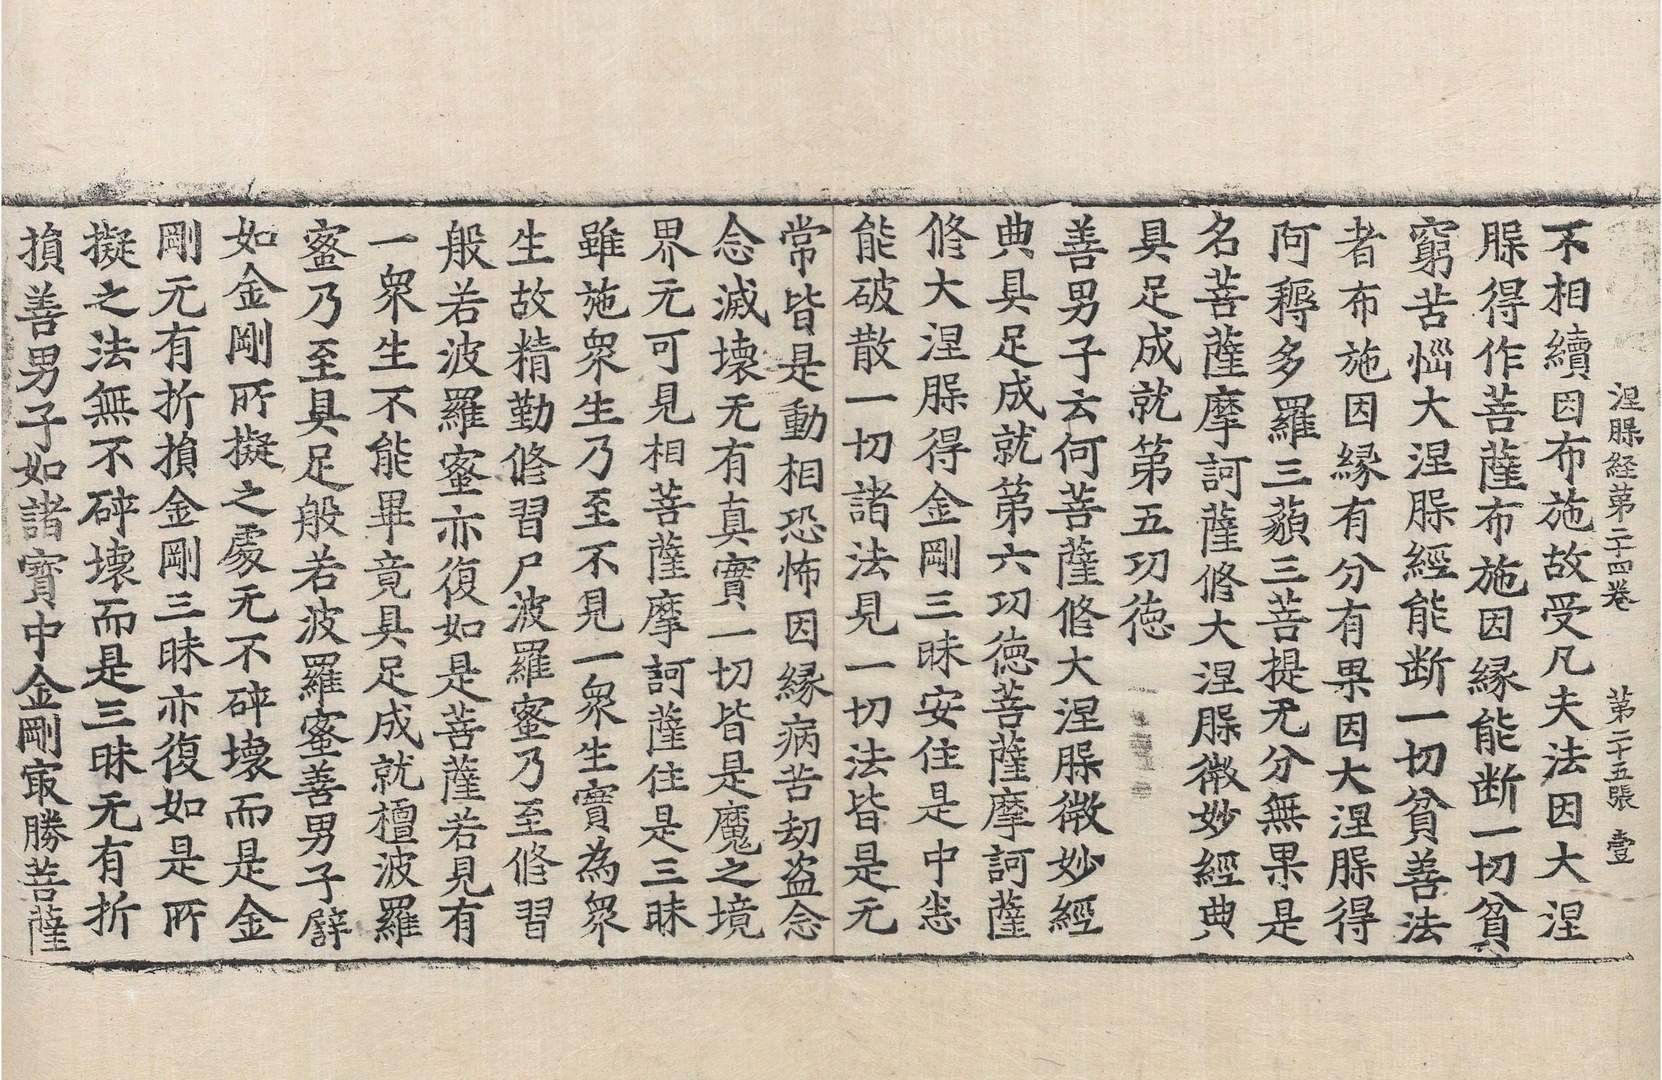 涅䏶経第二十四卷　第二十五張　壹
不相續因布施故受凡夫法因大涅
䏶得作菩薩布施因縁能断一切貧
窮苦惱大涅䏶經能断一切貧善法
者布施因縁有分有果因大涅䏶得
阿耨多羅三藐三菩提无分無果是
名菩薩摩訶薩俢大涅䏶微妙經典
具足成就第五功徳
善男子云何菩薩俢大涅䏶微妙經
典具足成就第六功徳菩薩摩訶薩
俢大涅䏶得金剛三昧安住是中悉
能破散一切諸法見一切法皆是无
常皆是動相恐怖因縁病苦劫盗念
念滅壊无有真實一切皆是魔之境
界元可見相菩薩摩訶薩住是三昧
雖施衆生乃至不見一衆生實為衆
生故精勤俢習尸波羅蜜乃至俢習
般若波羅蜜亦復如是菩薩若見有
一衆生不能畢竟具足成就檀波羅
蜜乃至具足般若波羅蜜善男子譬
如金剛所擬之處无不碎壊而是金
剛元有折損金剛三昧亦復如是所
擬之法無不碎壊而是三昧无有折
損善男子如諸寶中金剛㝡勝菩薩